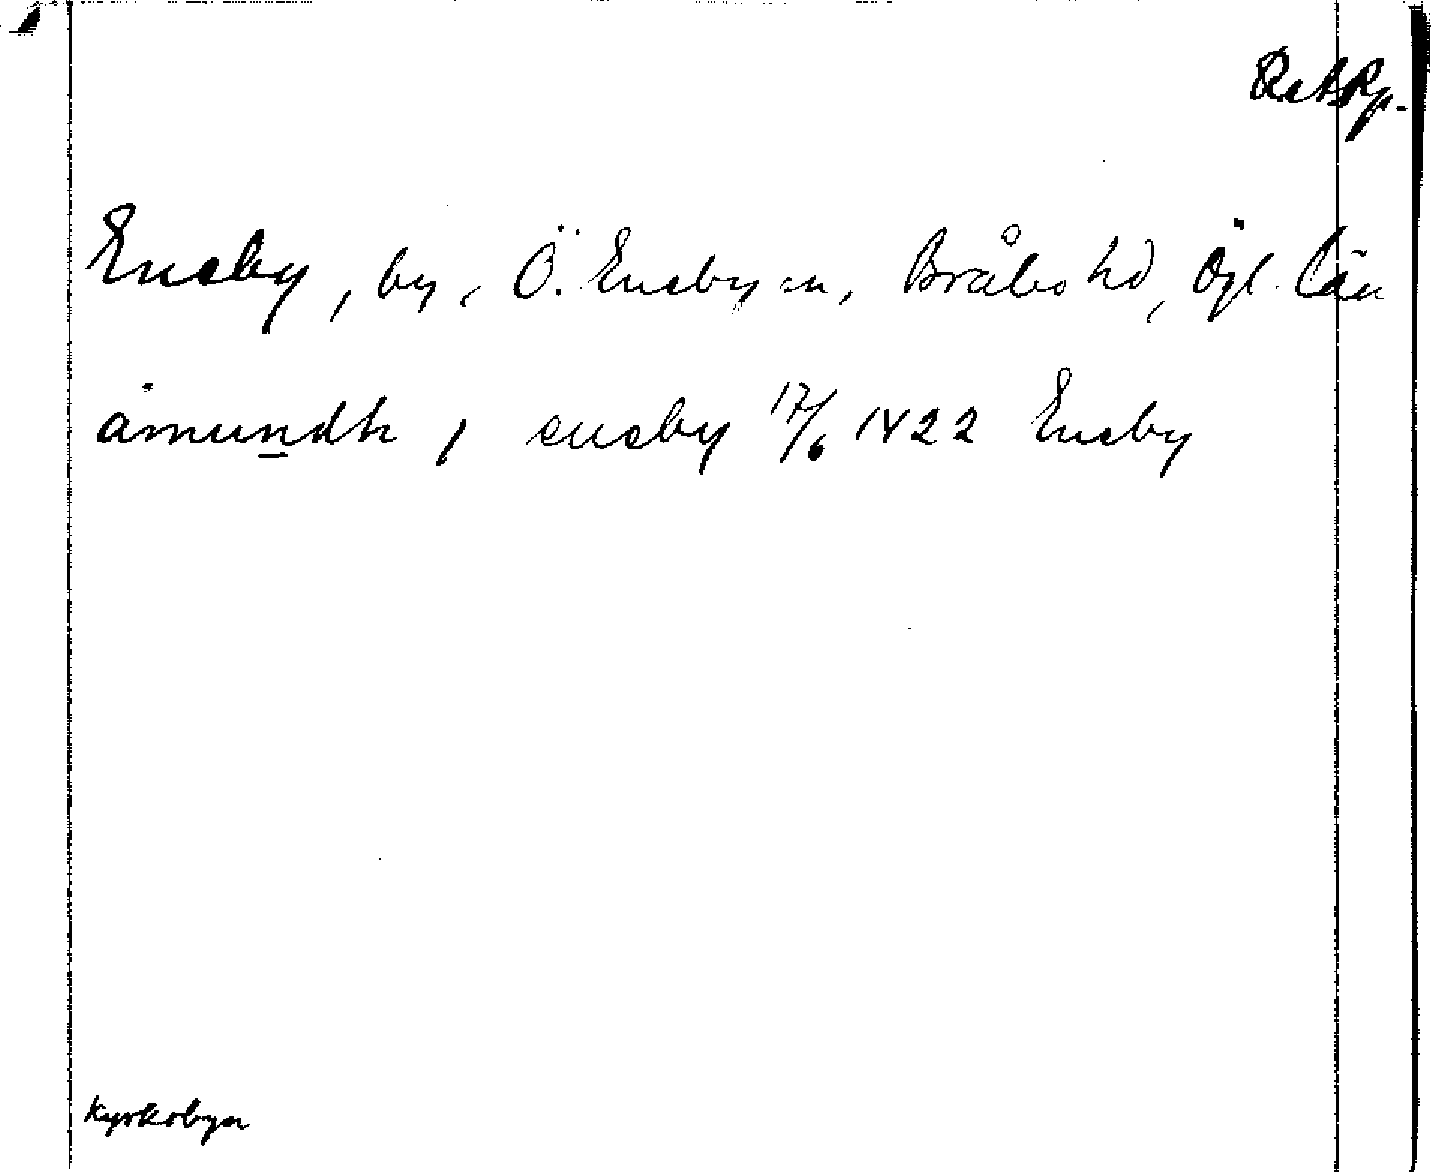 RAp.
Eneby, by, Ö. Eneby sn, Bråbo hd, Ögl. län
ämundh j eneby 17/6 1422 Eneby
Kyrkobyn